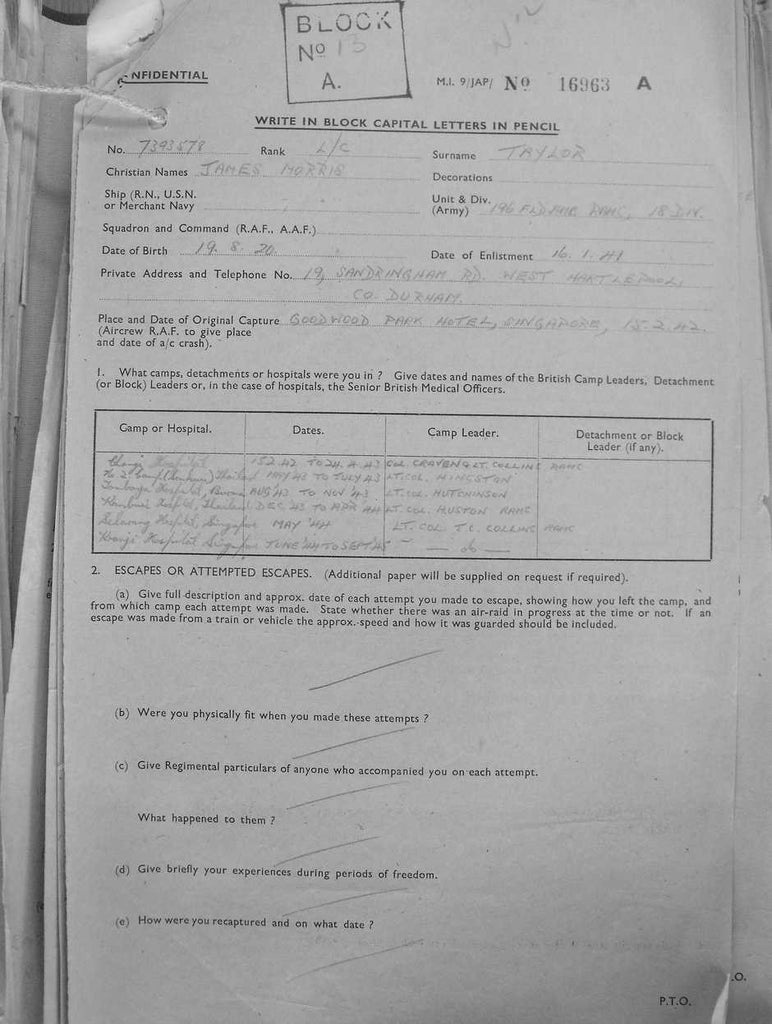 BLOCK
No 13
A.
NFIDENTIAL
M.I. 9/JAP/ No 16963 A
WRITE IN BLOCK CAPITAL LETTERS IN PENCIL
No. 7393578 Rank L/C Surname TAYLOR
Christian Names JAMES MORRIS Decorations
Ship (R.N., U.S.N. or Merchant Navy
Unit & Div. (Army) 196 FLD AMB RAMC, 18 DIV.
Squadron and Command (R.A.F., A.A.F.)
Date of Birth 19. 8. 20. Date of Enlistment 16. 1. 41
Private Address and Telephone No. 19, SANDRINGHAM RD. WEST HARTLEPOOL,
CO. DURHAM.
Place and Date of Original Capture GOODWOOD PARK HOTEL, SINGAPORE, 15.2.42.
(Aircrew R.A.F. to give place
and date of a/c crash).
1. What camps, detachments or hospitals were you in ? Give dates and names of the British Camp Leaders, Detachment
(or Block) Leaders or, in the case of hospitals, the Senior British Medical Officers.
Camp or Hospital. Dates. Camp Leader. Detachment or Block Leader (if any).
Changi Hospital 15.2.42 TO 24.4.43 COL CRAVEN & LT. COLLINS RAMC
No 2 Camp Thailand MAY 43 TO JULY 43 LT. COL.
Hospital, Burma AUG 43 TO NOV 43 LT. COL. HUTCHINSON
Hospital, Thailand DEC 43 TO APR 44 LT. COL. HUSTON RAMC
Selarang Hospital, Singapore MAY '44 LT. COL T.C. COLLINS RAMC
Kranji Hospital Singapore JUNE '44 TO SEPT '45 — do —
2. ESCAPES OR ATTEMPTED ESCAPES. (Additional paper will be supplied on request if required).
(a) Give full description and approx. date of each attempt you made to escape, showing how you left the camp, and
from which camp each attempt was made. State whether there was an air-raid in progress at the time or not. If an
escape was made from a train or vehicle the approx. speed and how it was guarded should be included.
(b) Were you physically fit when you made these attempts ?
(c) Give Regimental particulars of anyone who accompanied you on each attempt.
What happened to them ?
(d) Give briefly your experiences during periods of freedom.
(e) How were you recaptured and on what date ?
.O.
P.T.O.